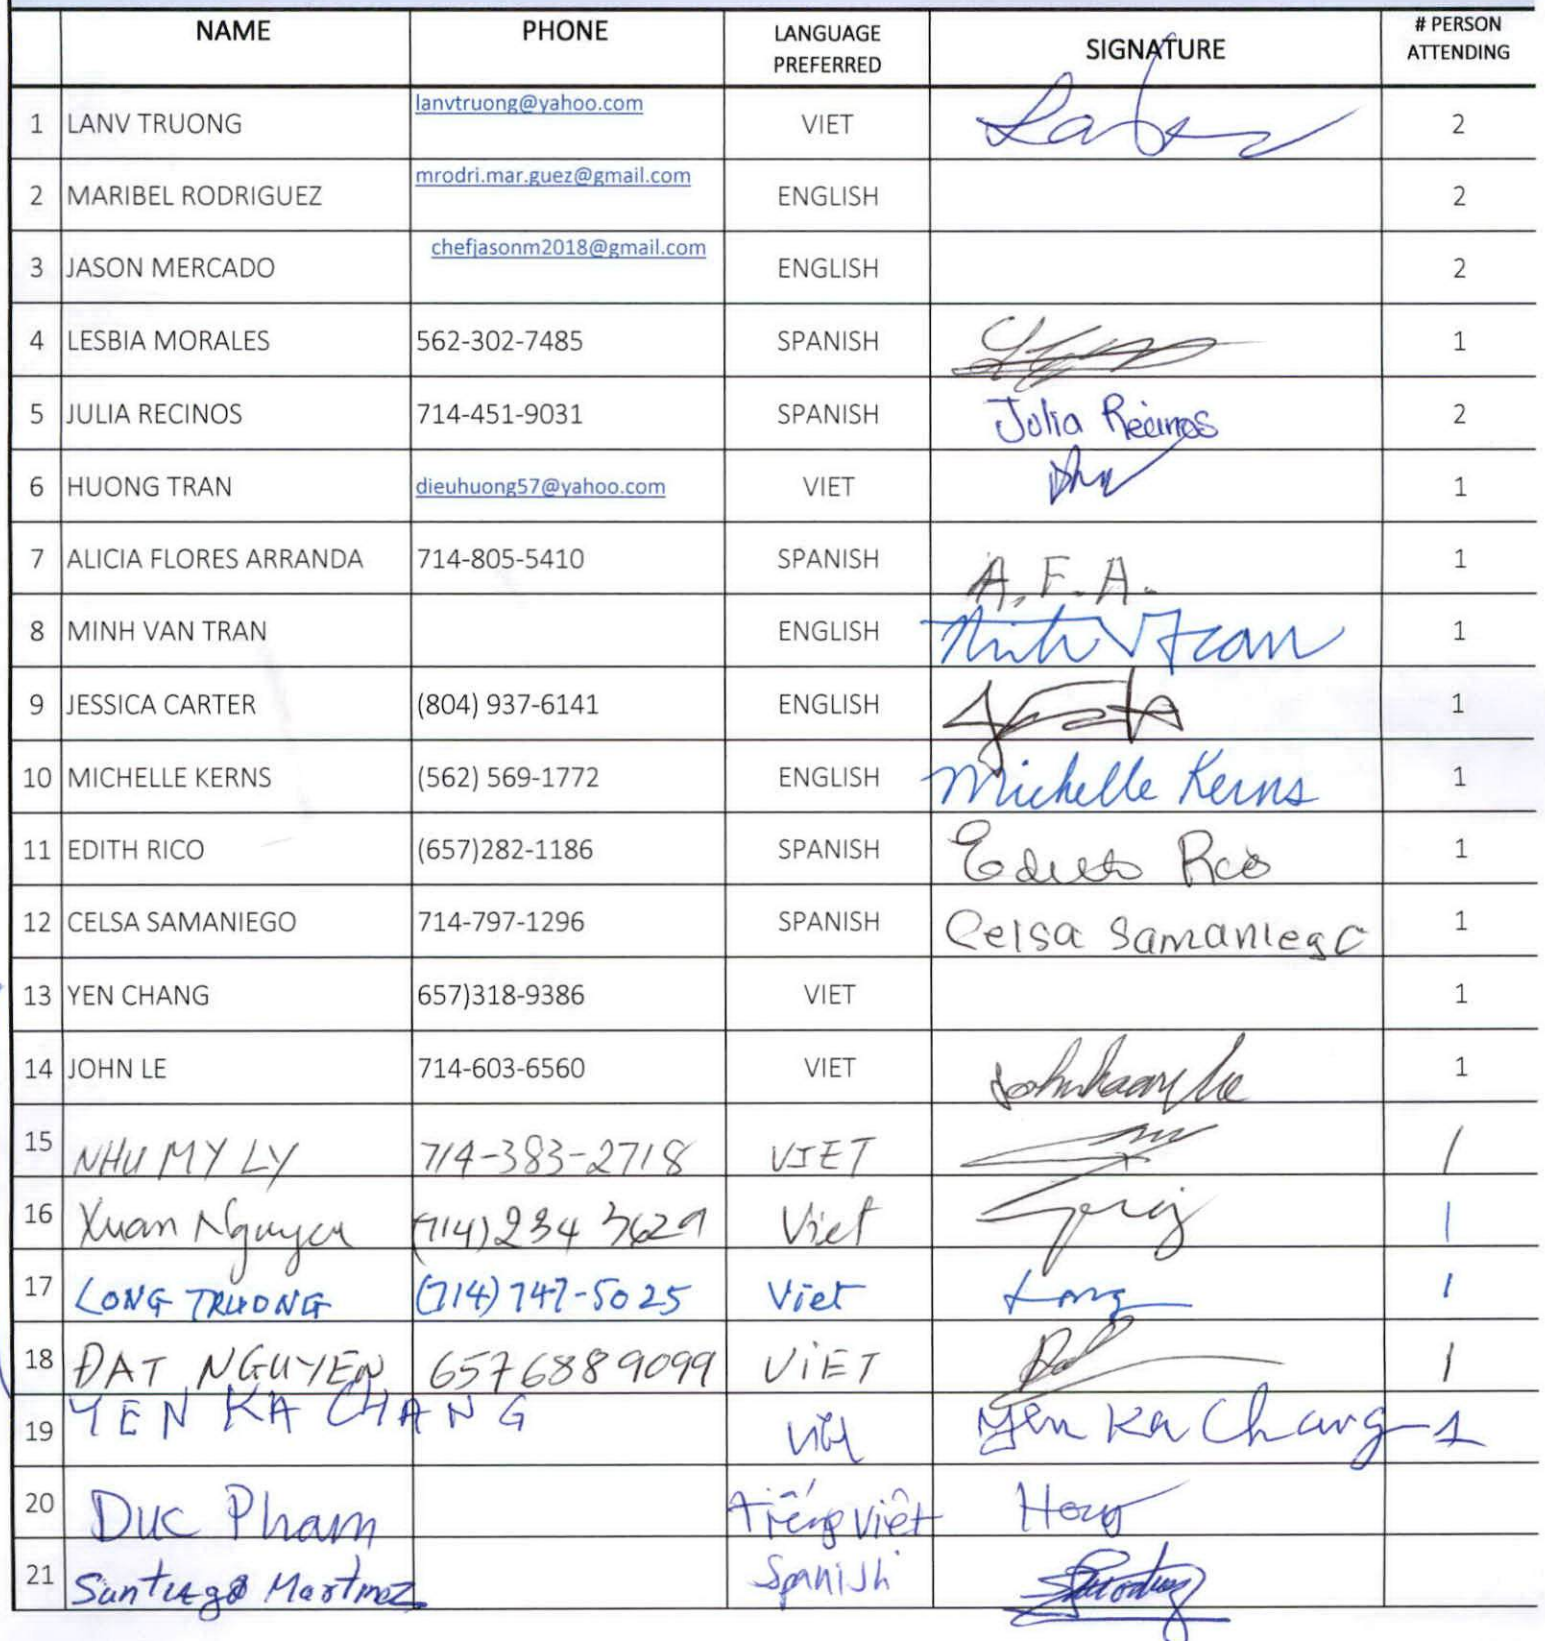 NAME PHONE LANGUAGE PREFERRED SIGNATURE # PERSON ATTENDING
1 LANV TRUONG lanvtruong@yahoo.com VIET 2
2 MARIBEL RODRIGUEZ mrodri.mar.guez@gmail.com ENGLISH 2
3 JASON MERCADO chefjasonm2018@gmail.com ENGLISH 2
4 LESBIA MORALES 562-302-7485 SPANISH 1
5 JULIA RECINOS 714-451-9031 SPANISH Julia Recinos 2
6 HUONG TRAN dieuhuong57@yahoo.com VIET 1
7 ALICIA FLORES ARRANDA 714-805-5410 SPANISH A.F.A. 1
8 MINH VAN TRAN ENGLISH Minh V Tran 1
9 JESSICA CARTER (804) 937-6141 ENGLISH 1
10 MICHELLE KERNS (562) 569-1772 ENGLISH Michelle Kerns 1
11 EDITH RICO (657)282-1186 SPANISH 1
12 CELSA SAMANIEGO 714-797-1296 SPANISH Celsa Samaniego 1
13 YEN CHANG 657)318-9386 VIET 1
14 JOHN LE 714-603-6560 VIET 1
15 NHU MY LY 714-383-2718 VIET 1
16 Xuan Nguyen (714) 234 3629 Viet 1
17 LONG TRUONG (714) 747-5025 Viet Long 1
18 ĐAT NGUYEN 6576889099 ViET 1
19 YEN KA CHANG Việt Yen Ka Chang - 1
20 Duc Pham Tiếng Việt
21 Santiago Martinez Spanish